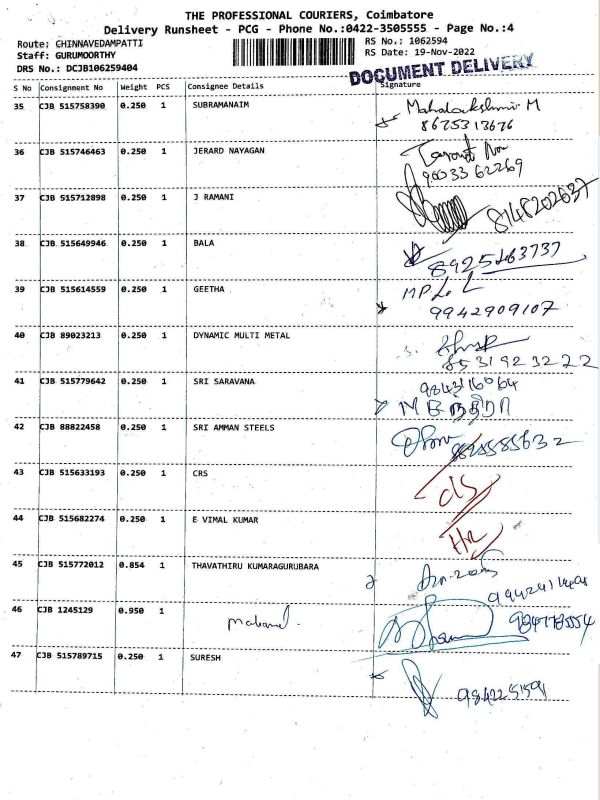 THE PROFESSIONAL COURIERS, Coimbatore
Delivery Runsheet - PCG - Phone No.:0422-3505555 - Page No.:4
Route: CHINNAVEDAMPATTI
RS No.: 1062594
Staff: GURUMOORTHY
RS Date: 19-Nov-2022
DRS No.: DCJB106259404
DOCUMENT DELIVERY
S No Consignment No Weight PCS Consignee Details Signature
35 CJB 515758390 0.250 1 SUBRAMANAIM Mahalakshmi M
8675313676
36 CJB 515746463 0.250 1 JERARD NAYAGAN
90033 62269
37 CJB 515712898 0.250 1 J RAMANI 8148202637
38 CJB 515649946 0.250 1 BALA
39 CJB 515614559 0.250 1 GEETHA
9942909107
40 CJB 89023213 0.250 1 DYNAMIC MULTI METAL
8531923222
41 CJB 515779642 0.250 1 SRI SARAVANA 9843116064
42 CJB 88822458 0.250 1 SRI AMMAN STEELS
43 CJB 515633193 0.250 1 CRS
44 CJB 515682274 0.250 1 E VIMAL KUMAR
45 CJB 515772012 0.854 1 THAVATHIRU KUMARAGURUBARA
46 CJB 1245129 0.950 1
47 CJB 515789715 0.250 1 SURESH